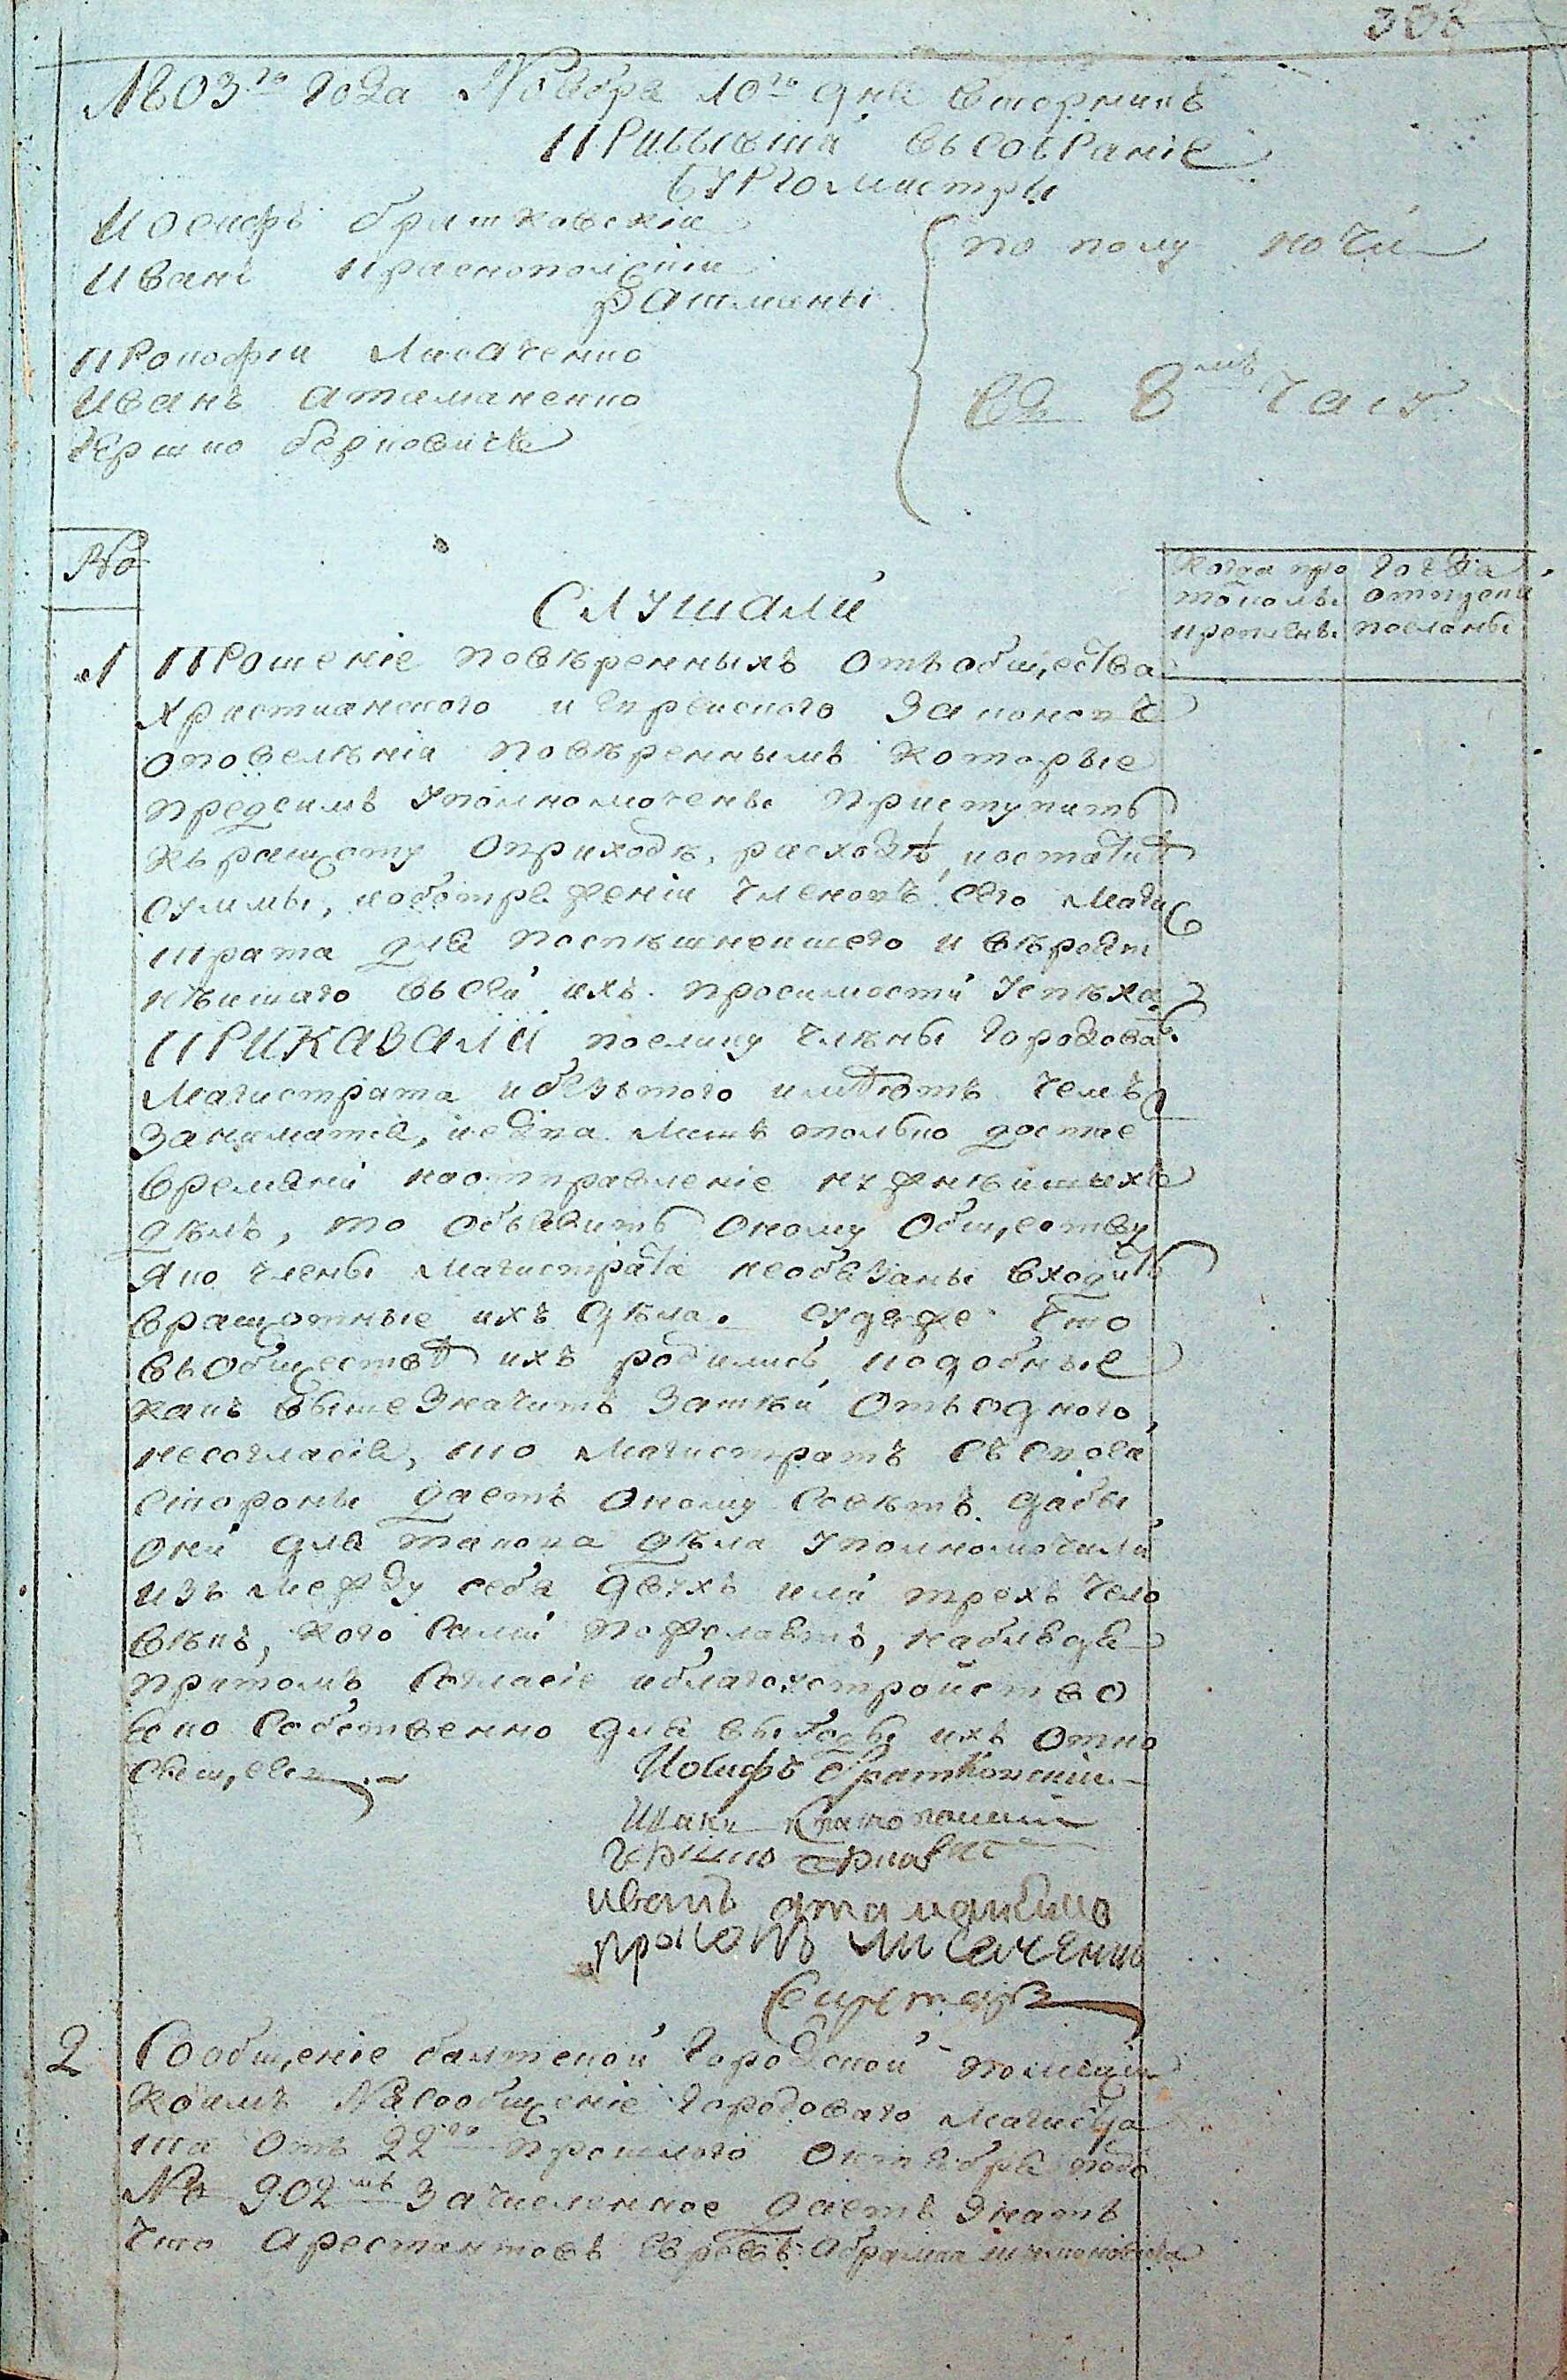 338
1803го года Ноября 10го дня вторникъ
Прибывши въ собраніе
Бургомистры
Иосифъ братковскіи
Иванъ краснополскіи
ратманы
Прокофіи Лисаченко
Иванъ атаманенко
Гершко берковичъ
по полу ночи
въ 8мъ часу
№
Когда про токолъ крепленъ
Когда отпуски посланы
Слушали
1 Прошеніе повѣренныхъ отъ общества
христианского и еврейского законовъ
оповелѣніи повѣреннымъ которые
предсимъ уполномочены приступить
къ ращоту оприходѣ, расходѣ, иостаткѣ
суммы, иоботряженіи членовъ сего Маги
страта для поспѣшнеишего и вѣроят
нѣишаго въ сей ихъ просимости успѣха
Приказали поелику члѣны городова
Магистрата ибезътого имѣютъ чемъ
заниматся, иедва лишъ только достае
времяни наотправленіе нужнѣишихъ
дѣлъ, то объявить оному обществу
яко члены Магистрата необязаны входить
вращотные ихъ дѣла. Судяже что
въобществѣ ихъ родились подобные
какъ вышезначитъ затѣи отъодного
несогласія, то Магистратъ съ своея
стороны даетъ оному совѣтъ дабы
они для такова дѣла уполномочили
изъ между себя двухъ или трехъ чело
вѣкъ, кого сами пожелаютъ, наблюдя
притомъ согласіе иблагоустройство
яко собственно для выгоды ихъ отно
сящееся
Иосифъ Братковскіи
Иванъ Краснополскіи
Гершко Берковичъ
иванъ атаманенко
прокопъ лисаченко
Секретарь
2 Сообщеніе балтской городской полиціи
коимъ насообщеніе городоваго Магистра
та отъ 22го прошлого октября подъ
№ 902мъ зачисленное даетъ знать
что арестантовъ евреевъ абрамка